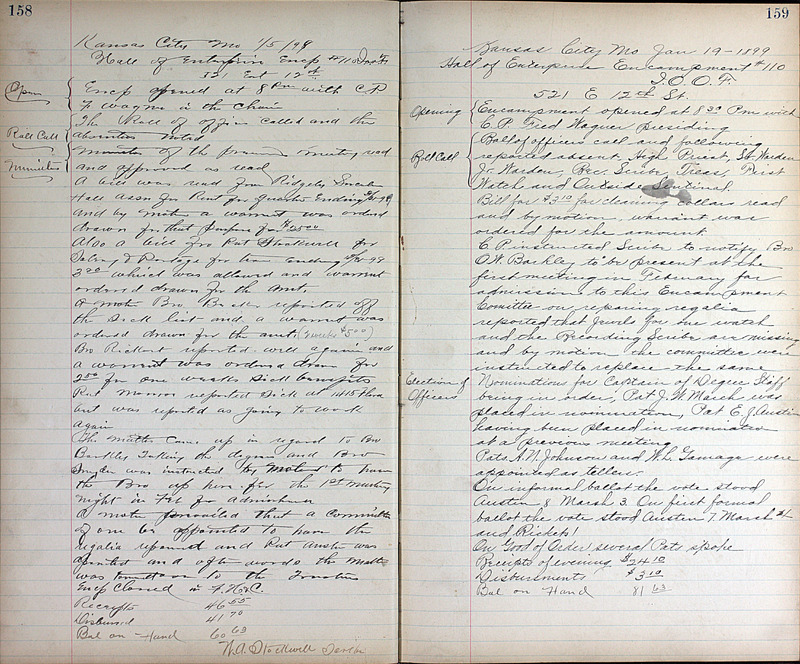 158
Kansas City Mo 1/5/99
Hall of Enterprise Encp #110 IOOF
521 East 12th
Open
Encp opened at 8 Pm with C.P.
F Wagner in the Chair
Roll Call
The Roll of officers called and the
absentees noted
Minutes
Minutes of the previous meeting read
and approved as read
A bill was read from Ridgely
Hall Assn for Rent for Quarter Ending
and by motn a warrant was ordered
drawn for that purpose for $25.00
Also a bill for Pat Stockwell for
Salary & Postage for term Ending 99
which was allowed and warrant
ordered drawn for the Amt.
A motn Bro. reported off
the Sick list and a warrant was
ordered drawn for the amt. (2 weeks $5.00)
Bro Rickets reported well again and
a warrant was ordered drawn for
2.50 for one weeks Sick benefits
Pat reported Sick at
but was reported as going to work
again
The matter came up in regard to Bro
Barkley taking the degree and Bro
Snyder was instructed by motn to have
the Bro up here for the 1st meeting
night in Feb for admission
A motn prevailed that a Committee
of one be appointed to have the
regalia repaired and Pat Austin was
apointed and afterwards the matter
was turned over to the Trustees
Encp Closed in F.H.&C.
Receipts 46 55
Disbursed 41 70
Bal on Hand 60 63
W.A. Stockwell Scribe
159
Kansas City Mo Jan 19-1899
Hall of Enterprise Encampment #110
I.O.O.F.
521 E 12th St.
Opening
Encampment opened at 8 30 P.m. with
C.P. Fred Wagner Presiding
Roll Call
Roll of officers call and following
reported absent, High Priest, Sr. Warden
Jr. Warden, Rec. Scribe, Treas, First
Watch and Outside Sentinal
Bill for $3.10 for cleaning Collars read
and by motion, warrant was
ordered for the amount
C P instructed Scribe to notify Bro
O.W. Backley to be present at the
first meeting in February for
admission to this Encampment
Committee on repairing regalia
reported that Jewels for one watch
and the Recording Scribe are missing
and by motion the committee were
instructed to replace the same
Election of
Officers
Nominations for Captain of Degree Staff
being in order, Pat J. W. March was
placed in nomination, Pat E. J. Austin
having been placed in nomination
at a previous meeting
Pats A.N. Johnson and W.L. Gamage were
appointed as tellers.
On informal ballot the vote stood
Austin 8 March 3. On first formal
ballot the vote stood Austin 7, March 2
and Rickets 1
On Good of Order several Pats spoke
Receipts of evening $24.10
Disbursments $3.10
Bal on Hand 81 63